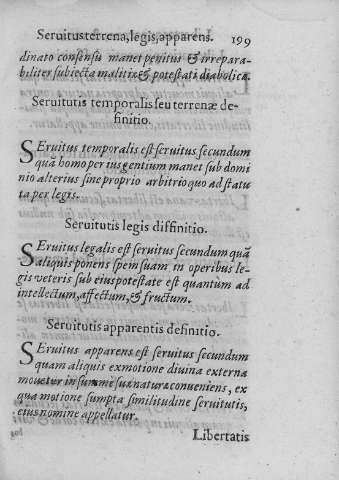 Seruitus terrena, legis, apparens. 199
dinato consensu manet penitus & irrepara-
biliter subiecta malitiæ & potestati diabolicæ.
Seruitutis temporalis seu terrenæ de-
finitio.
SEruitus temporalis est seruitus secundum
quã homo per ius gentium manet sub domi
nio alterius sine proprio arbitrio quo ad statu
ta per legis.
Seruitutis legis diffinitio.
SEruitus legalis est seruitus secundum quã
aliquis ponens spem suam in operibus le-
gis veteris sub eius potestate est quantum ad
intellectum, affectum, & fructum.
Seruitutis apparentis definitio.
SEruitus apparens est seruitus secundum
quam aliquis ex motione diuina externa
mouetur in summe suæ naturæ conueniens, ex
qua motione sumpta similitudine seruitutis,
eius nomine appellatur.
Libertatis